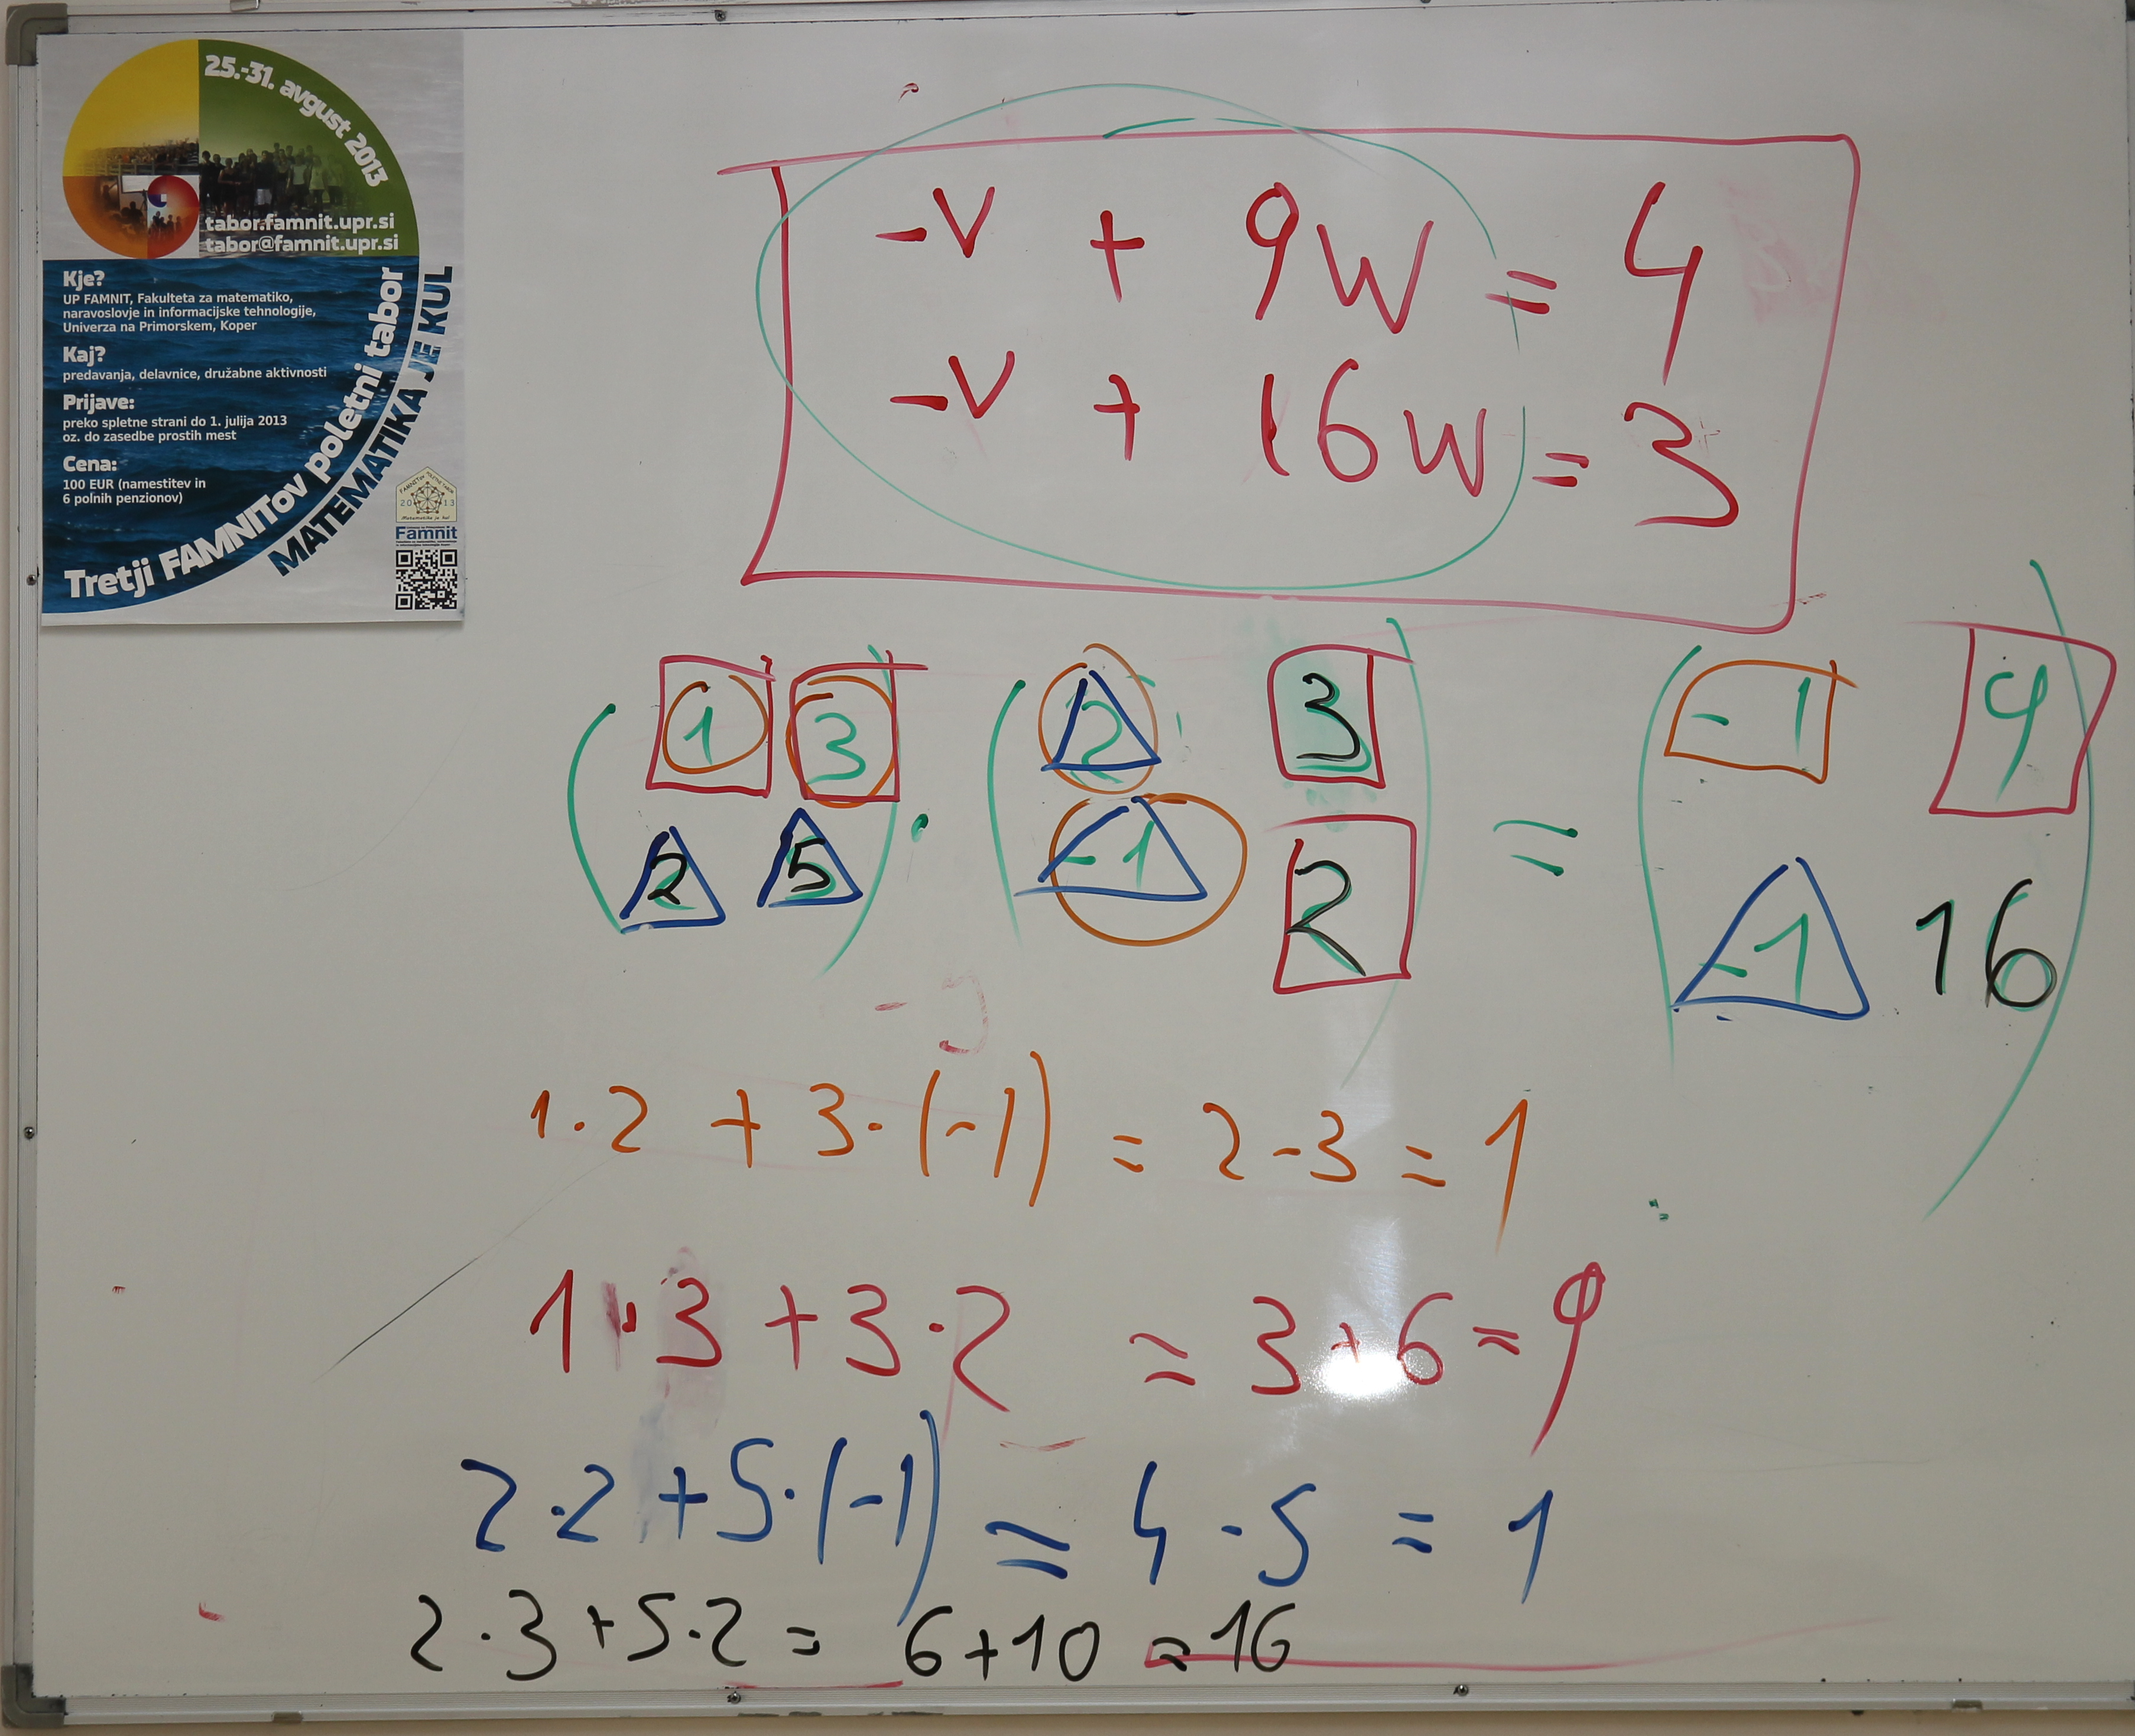 25.-31. avgust 2013
tabor.famnit.upr.si
tabor@famnit.upr.si
Kje?
UP FAMNIT, Fakulteta za matematiko,
naravoslovje in informacijske tehnologije,
Univerza na Primorskem, Koper
Kaj?
predavanja, delavnice, družabne aktivnosti
Prijave:
preko spletne strani do 1. julija 2013
oz. do zasedbe prostih mest
Cena:
100 EUR (namestitev in
6 polnih penzionov)
Tretji FAMNITov poletni tabor
MATEMATIKA JE KUL
2013
Famnit
-v + 9w = 4
-v + 16w = 3
( 1 3 ) · ( 2 3 ) = ( -1 9 )
( 2 5 ) ( -1 2 ) ( -1 16 )
1·2 + 3·(-1) = 2-3 = 1
1·3 + 3·2 = 3+6 = 9
2·2 + 5·(-1) = 4 - 5 = 1
2·3+5·2 = 6+10 = 16